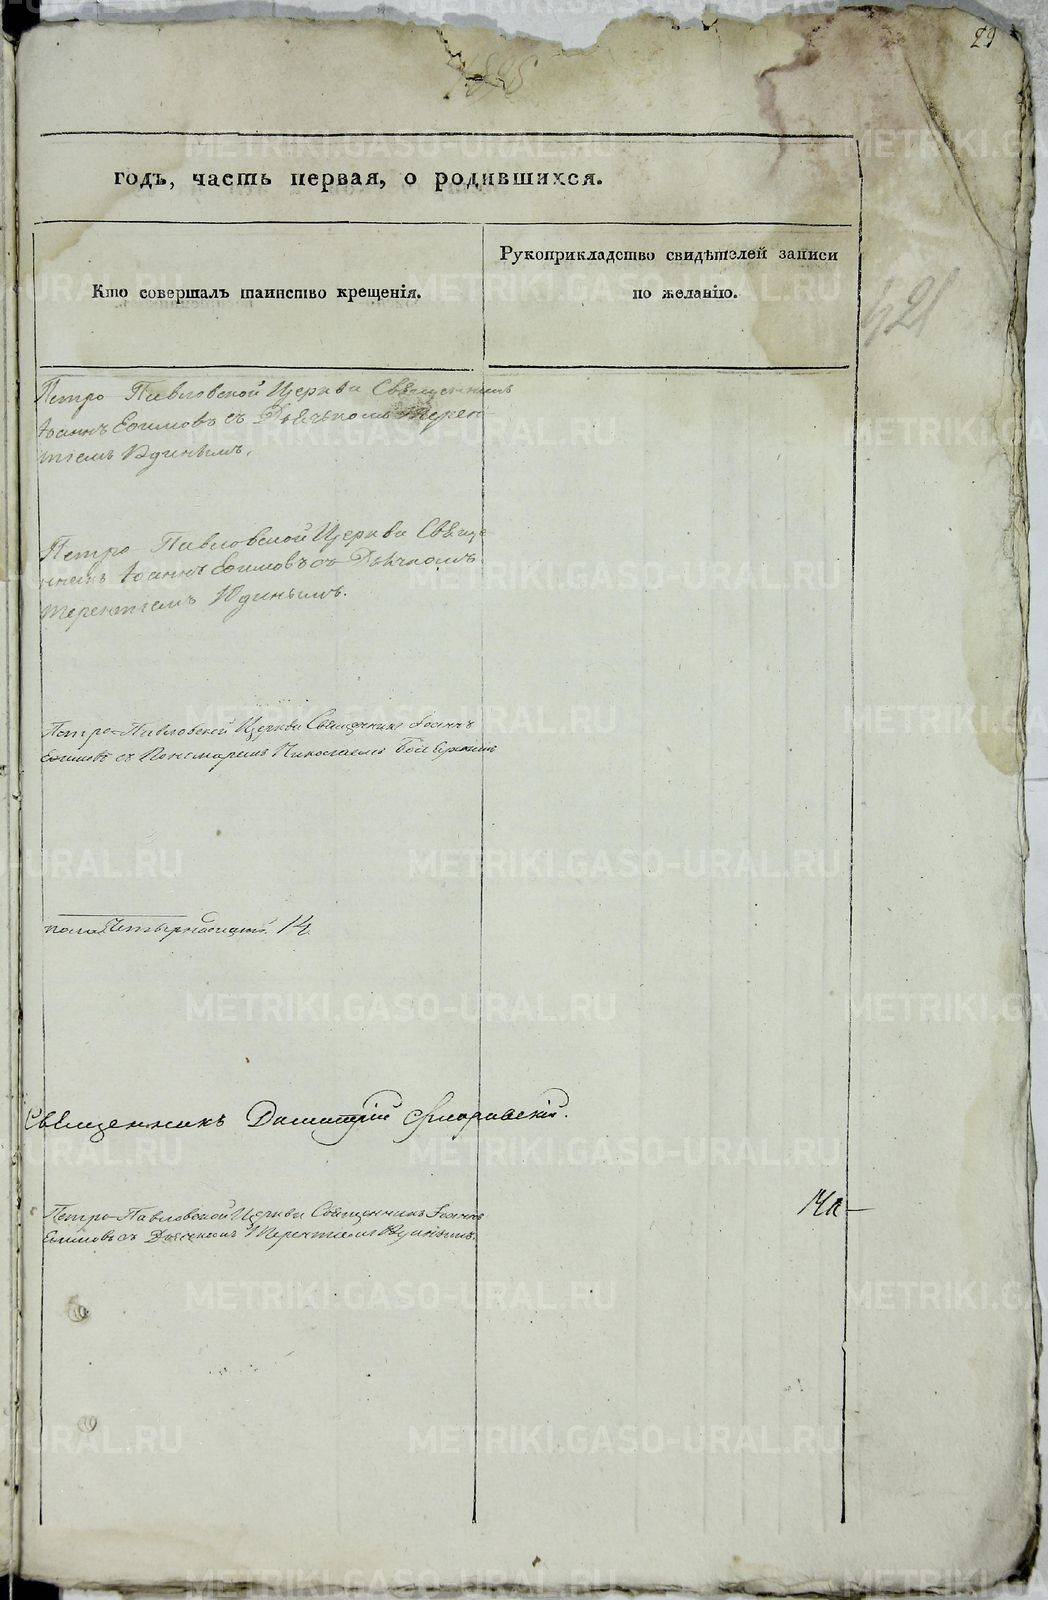 29
годъ, часть первая, о родившихся.
Кто совершалъ таинство крещенія.
Рукоприкладство свидѣтелей записи
по желанію.
421
Петро Павловской Церкви Священникъ
Іоаннъ Ефимовъ съ Дьячкомъ Терен-
тіемъ Юдинымъ.
Петро Павловской Церкви Свяще-
нникъ Іоаннъ Ефимовъ съ Дьячкомъ
Терентіемъ Юдинымъ.
Петро-Павловской Церкви Священникъ Іоаннъ
Ефимовъ съ Пономаремъ Николаемъ
пола Четырнадцать. 14.
Священникъ Димитрій Флоровскій.
Петро-Павловской Церкви Священникъ Іоаннъ
Ефимовъ съ Дьячкомъ Терентіемъ Юдинымъ.
METRIKI.GASO-URAL.RU